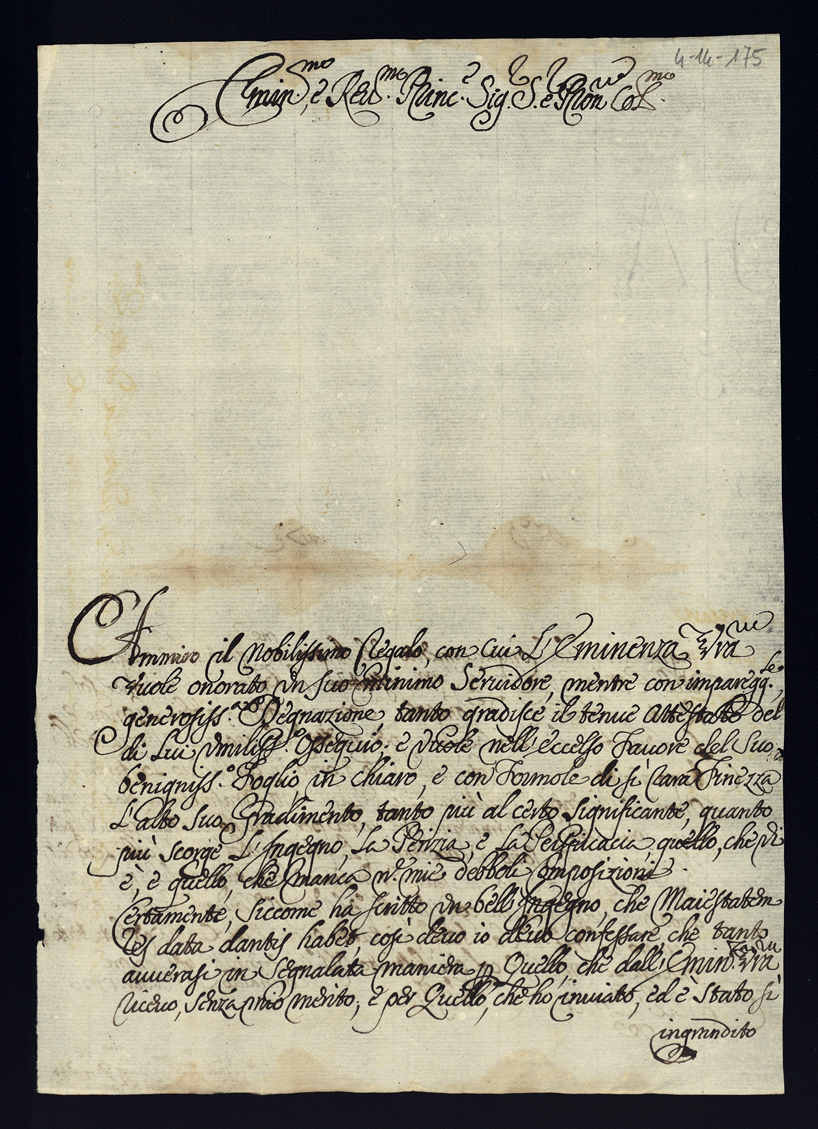 4-14-175
Emin.mo, e Reu.mo Princ.e Sig. S. e Pron Col.mo
Ammiro il Nobilissimo Regalo, con cui L'Eminenza Vra
vuole onorato un suo minimo Seruidore, mentre con imparegg.le,
generosiss.ma Degnazione, tanto gradisce il tenue Attestato del
di Lui Vmiliss.o Ossequio; e vuole nell'eccelso Fauore del Suo
benigniss.o Foglio in chiaro, e con Formole di sì rara Finezza
L'alto Suo Gradimento, tanto più al certo significante, quanto
più scorge L'Ingegno, La Perizia, e La Perspicacia quello, che vi
è, e quello, che manca n. mie debboli Composizioni.
Certamente, siccome ha scritto un bell'Ingegno, che Maiestatem
res data dantis habet, così deuo io deuo confessare, che tanto
auuerasi in segnalata maniera p Quello, che dall'Emin. Vra
riceuo, senza mio merito; e per Quello, che ho inuiato, ed è stato sì
ingrandito